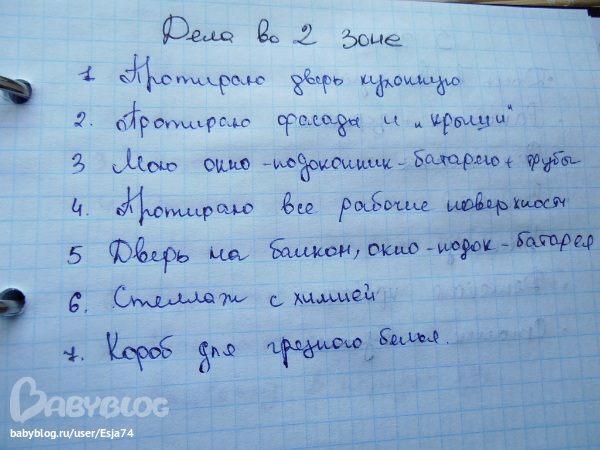 Дела во 2 зоне
1 Протираю дверь кухонную
2. Протираю фасады и "крыши"
3 Мою окно-подоконник-батарею+трубы
4. Протираю все рабочие поверхности
5 Дверь на балкон, окно-подок-батарея
6. Стеллаж с химией
7. Короб для грязного белья.
BABYBLOG
babyblog.ru/user/Esja74